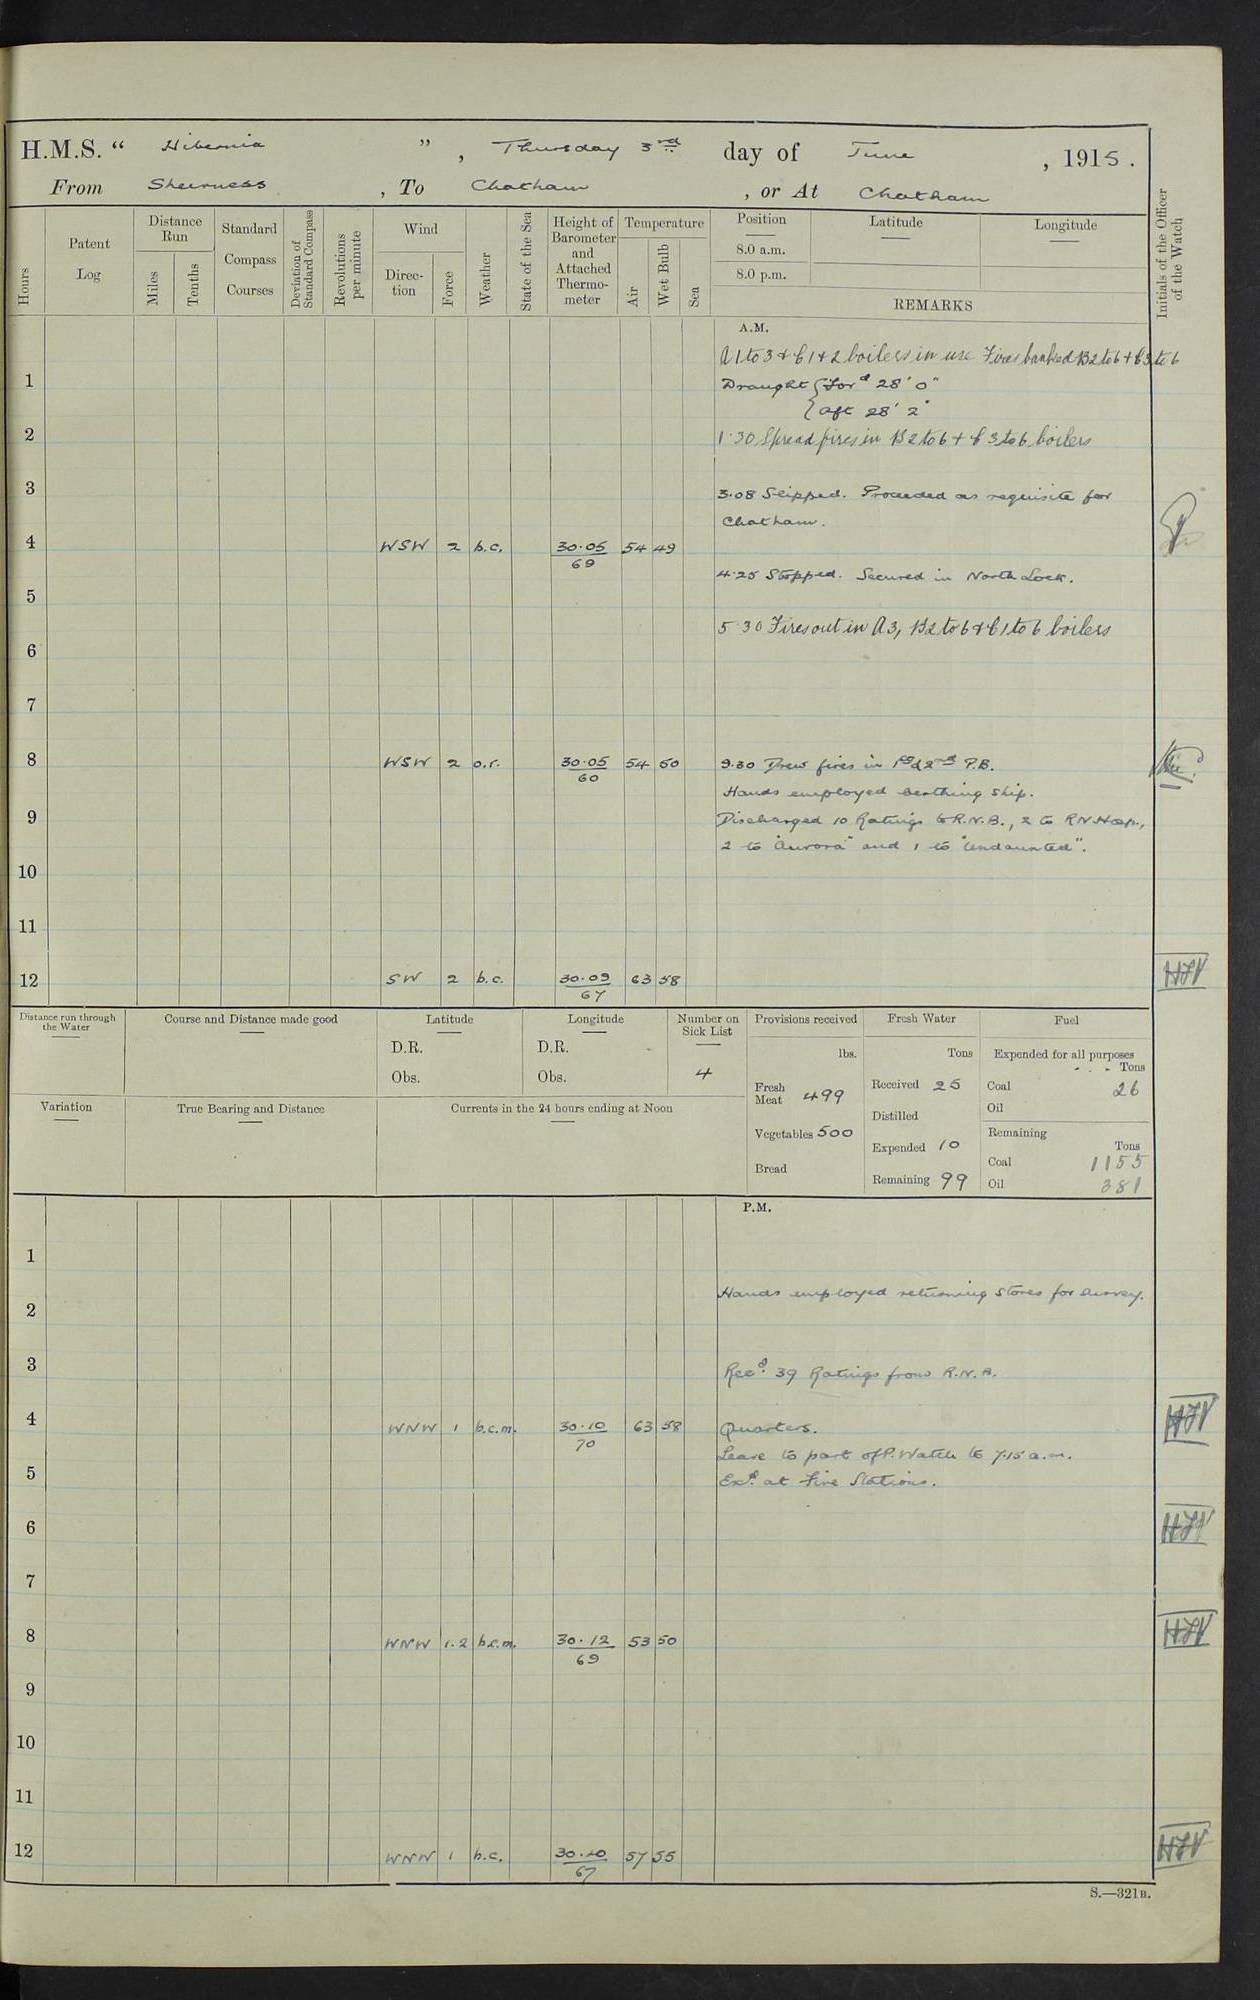 H.M.S. “ Hibernia ”, Thursday 3rd day of June, 1915.
From Sheerness, To Chatham, or At Chatham
Hours
Patent Log
Distance Run
Miles
Tenths
Standard Compass Courses
Deviation of Standard Compass
Revolutions per minute
Wind
Direc-tion
Force
Weather
State of the Sea
Height of Barometer and Attached Thermo-meter
Temperature
Air
Wet Bulb
Sea
Position
8.0 a.m.
8.0 p.m.
Latitude
Longitude
REMARKS
Initials of the Officer of the Watch
A.M.
A 1 to 3 & C 1 & 2 boilers in use Fires banked B2 to 6 & C 3 to 6
1 Draught { For'd 28' 0"
{ Aft 28' 2"
2 1.30 Spread fires in B 2 to 6 + C 3 to 6 boilers
3 3.08 Slipped. Proceeded as requisite for
Chatham.
4 WSW 2 b.c. 30.05 54 49
69
4.25 Stopped. Secured in North Lock.
5
5.30 Fires out in A3, B2 to 6 & C 1 to 6 boilers
6
7
8 WSW 2 o.r. 30.05 54 50 9.30 Drew fires in 1st & 2nd P.B.
60
Hands employed berthing ship.
9 Discharged 10 Ratings to R.N.B., 2 to RN Hosp.,
2 to "Aurora" and 1 to "Undaunted".
10
11
12 SW 2 b.c. 30.09 63 58 HJV
67
Distance run through the Water
Course and Distance made good
Latitude
D.R.
Obs.
Longitude
D.R.
Obs.
Number on Sick List
4
Variation
True Bearing and Distance
Currents in the 24 hours ending at Noon
Provisions received
lbs.
Fresh Meat 499
Vegetables 500
Bread
Fresh Water
Tons
Received 25
Distilled
Expended 10
Remaining 99
Fuel
Expended for all purposes
Tons
Coal 26
Oil
Remaining
Tons
Coal 1155
Oil 381
P.M.
1
Hands employed returning stores for survey.
2
3
Recd. 39 Ratings from R.N.B.
4 WNW 1 b.c.m. 30.10 63 58 Quarters. HJV
70
Leave to part of P. Watch to 7.15 a.m.
5 Exd. at Fire Stations.
6 HJV
7
8 WNW 1.2 b.c.m. 30.12 53 50 HJV
69
9
10
11
12 WNW 1 b.c. 30.10 57 55 HJV
67
S.—321B.